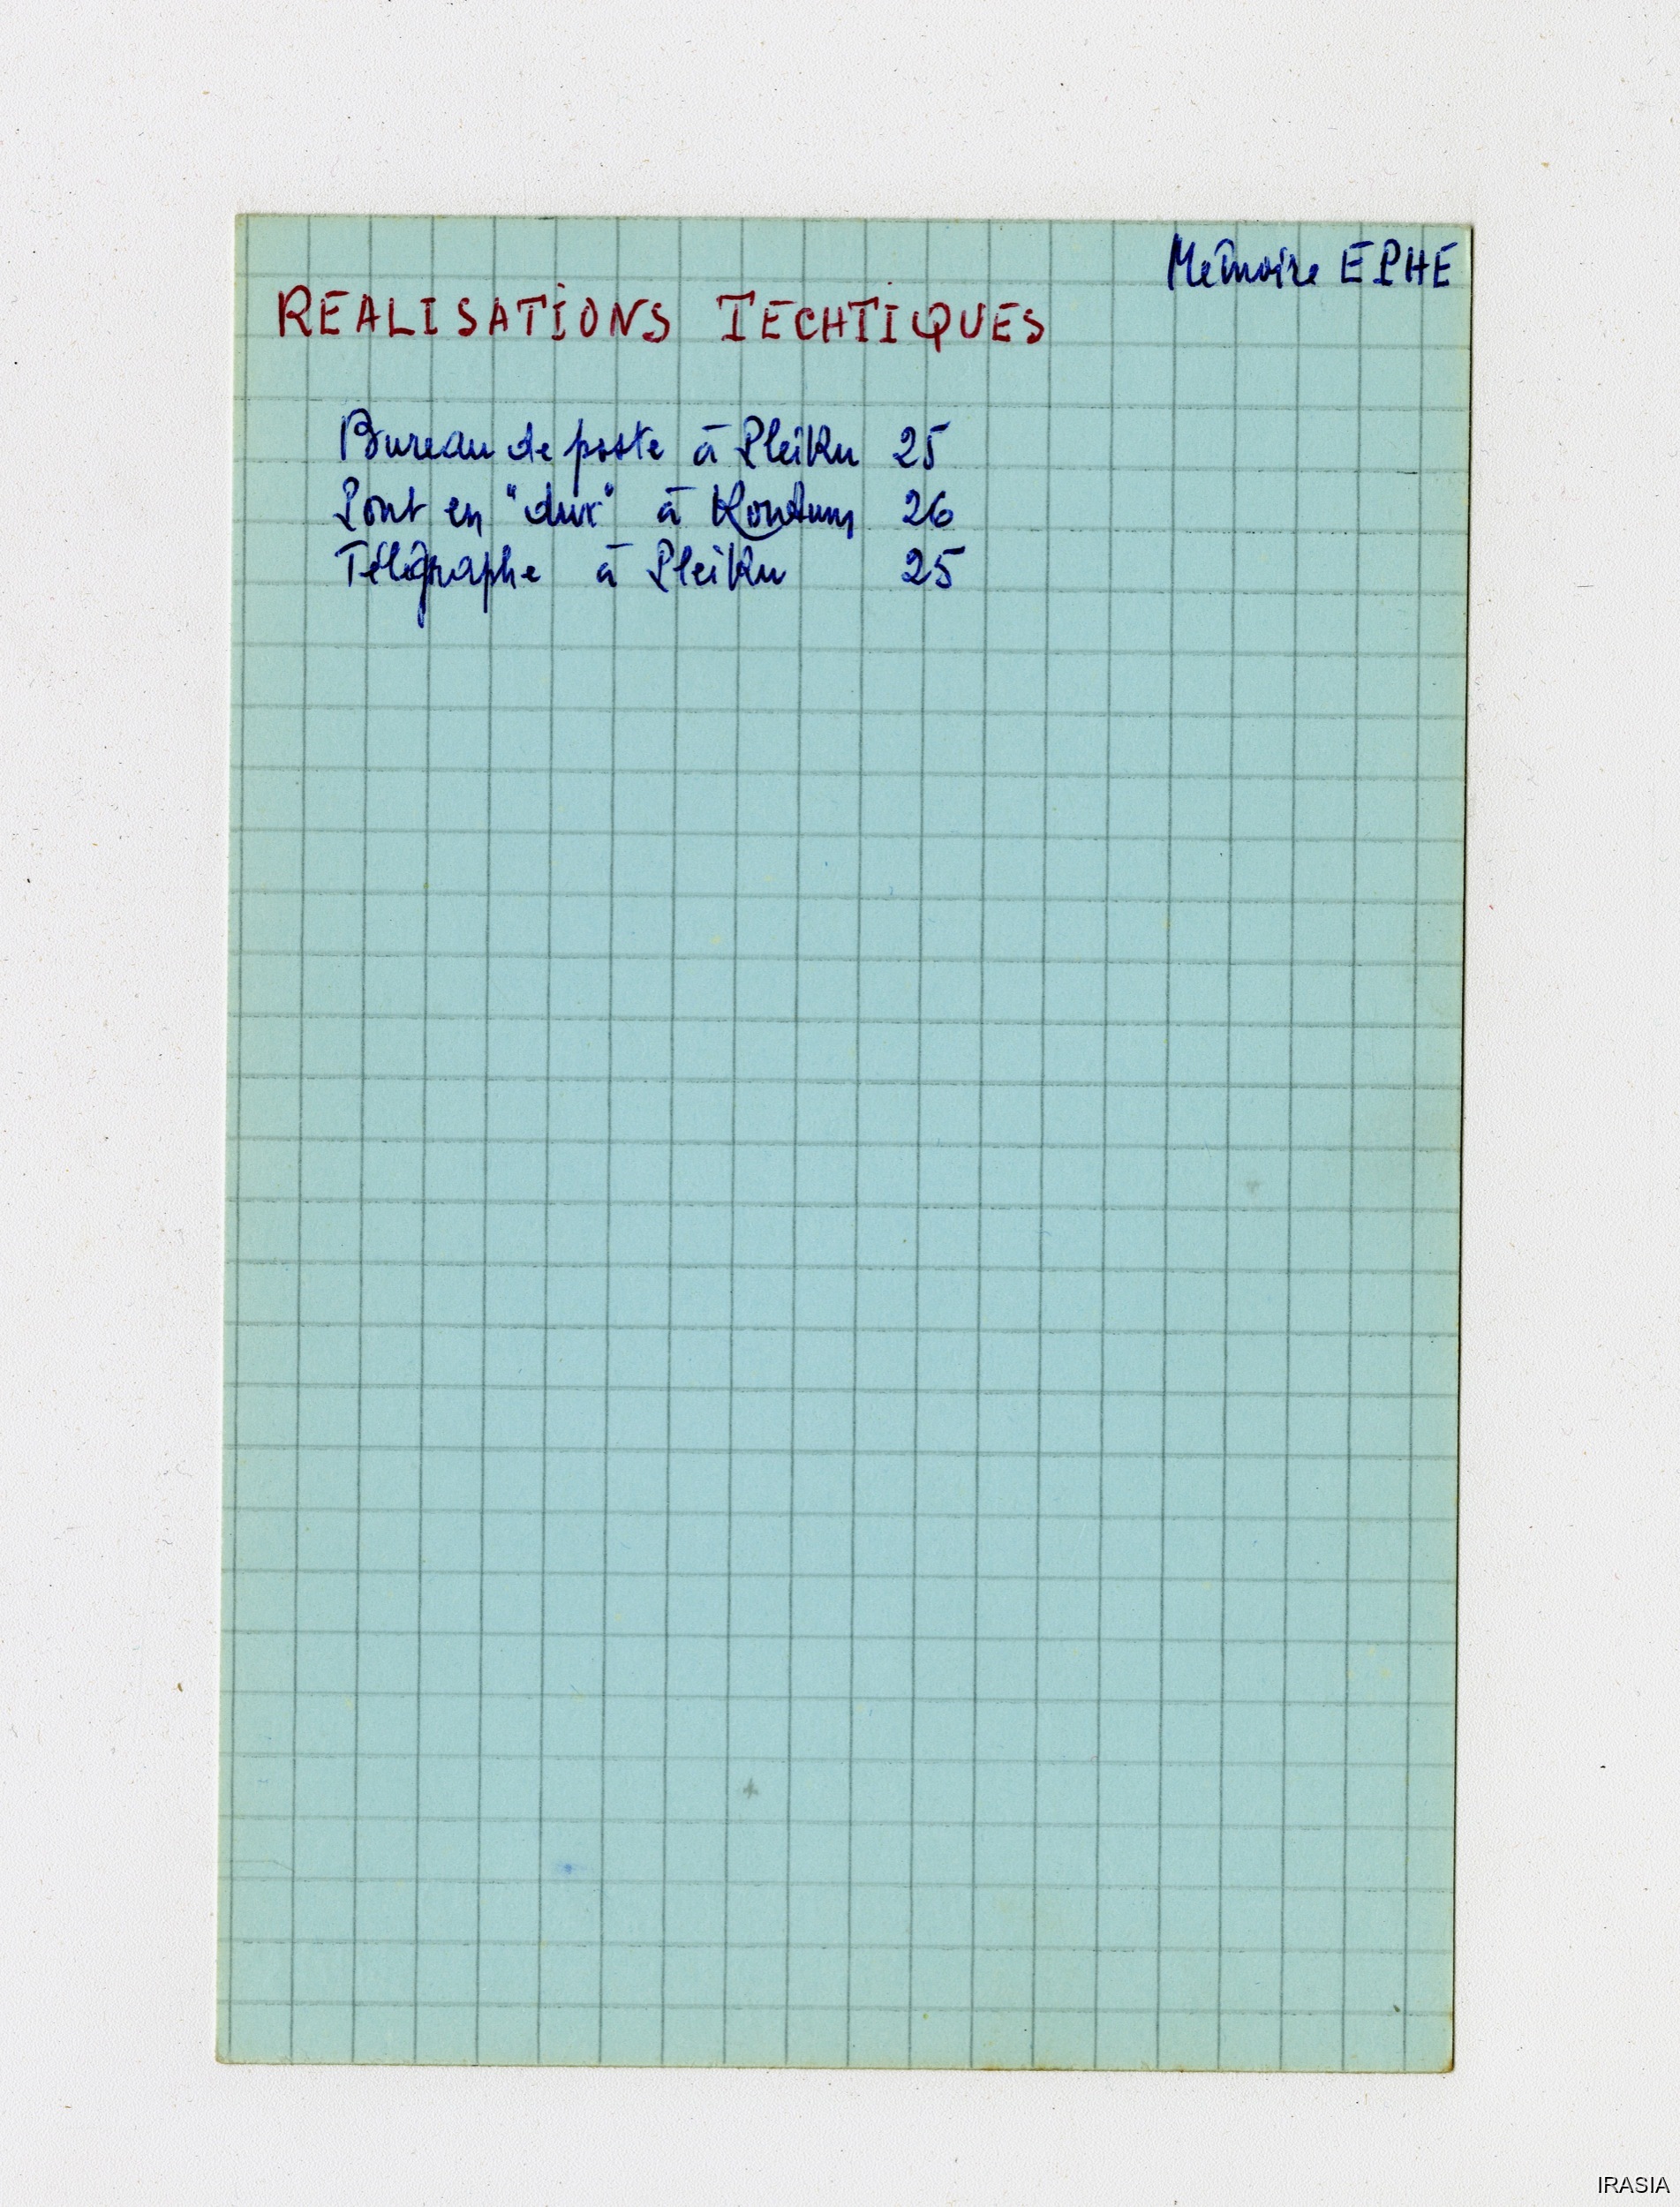 Mémoire EPHE
REALISATIONS TECHTIQUES
Bureau de poste à Pleiku 25
Pont en "dur" à Kontum 26
Télégraphe à Pleiku 25
IRASIA